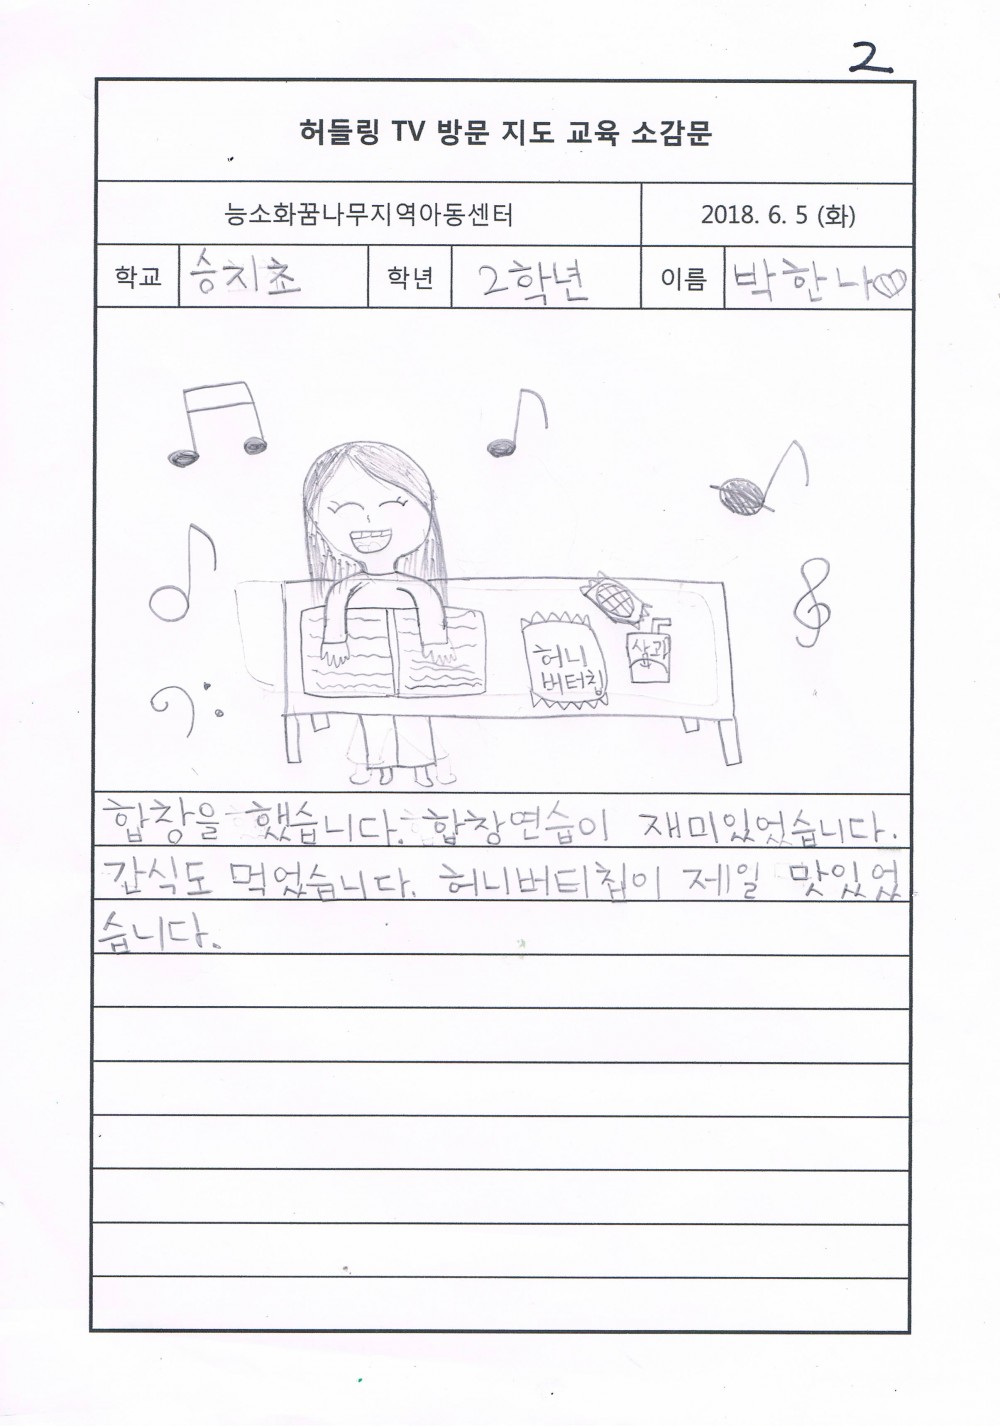 2
허들링 TV 방문 지도 교육 소감문
능소화꿈나무지역아동센터 2018. 6. 5 (화)
학교 승지초 학년 2학년 이름 박한나
허니
버터칩
사과
합창을 했습니다. 합창연습이 재미있었습니다.
간식도 먹었습니다. 허니버터칩이 제일 맛있었
습니다.